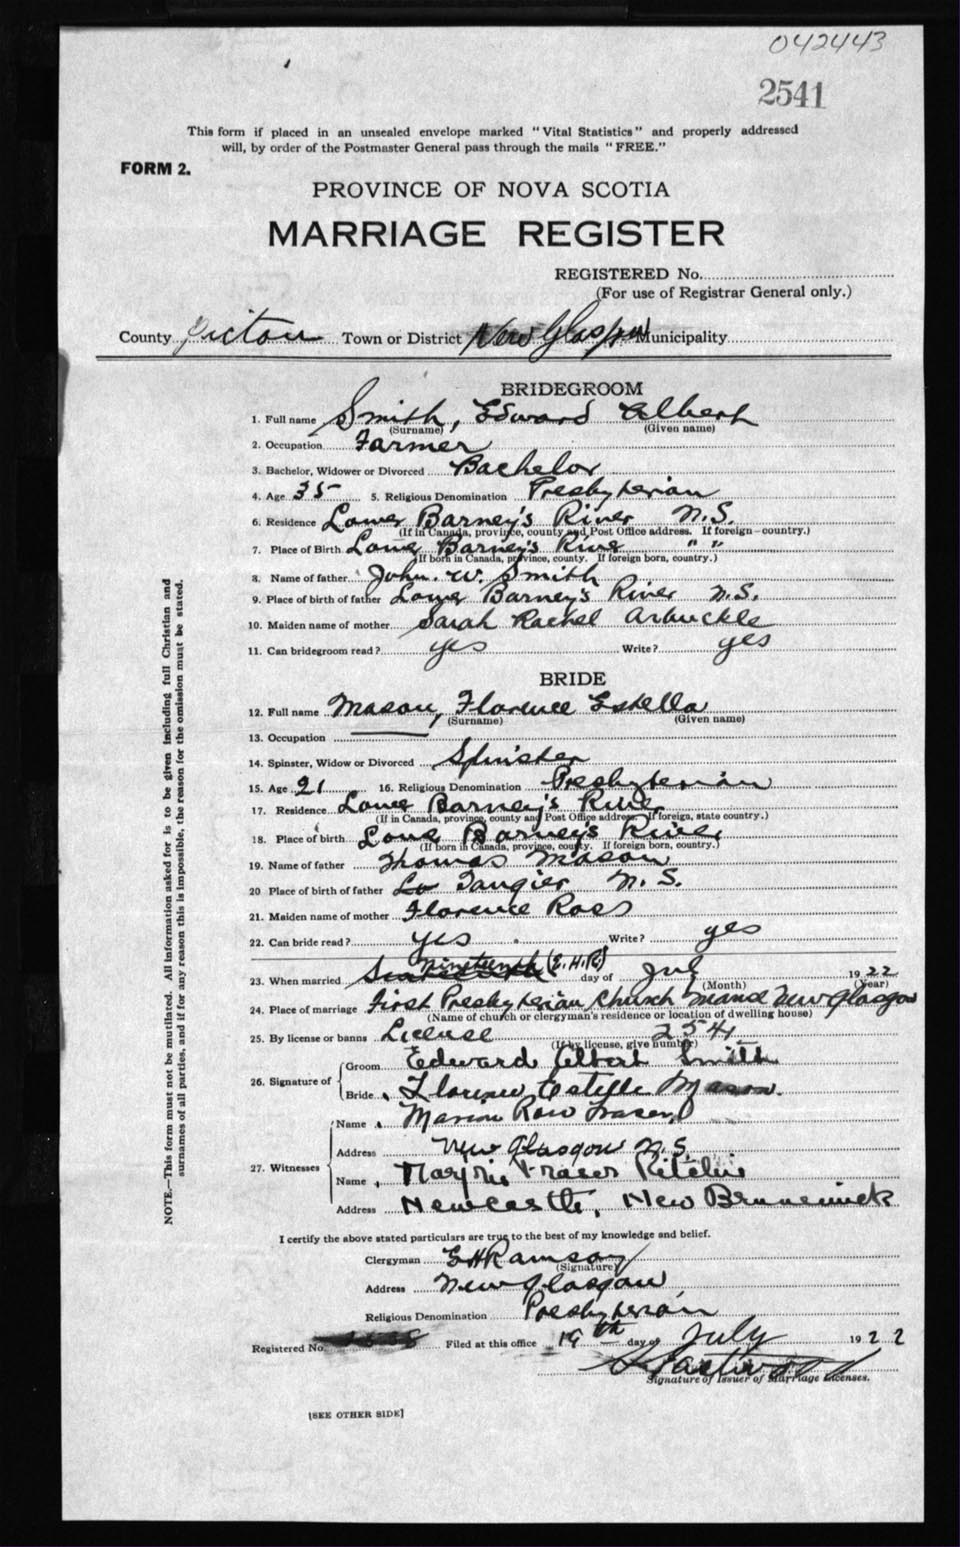 042443
2541
This form if placed in an unsealed envelope marked "Vital Statistics" and properly addressed
will, by order of the Postmaster General pass through the mails "FREE."
FORM 2.
PROVINCE OF NOVA SCOTIA
MARRIAGE REGISTER
REGISTERED No.
(For use of Registrar General only.)
County Pictou Town or District New Glasgow Municipality
BRIDEGROOM
1. Full name Smith, Edward Albert
(Surname) (Given name)
2. Occupation Farmer
3. Bachelor, Widower or Divorced Bachelor
4. Age 35 5. Religious Denomination Presbyterian
6. Residence Lower Barney's River N.S.
(If in Canada, province, county and Post Office address. If foreign—country.)
7. Place of Birth Lower Barney's River " "
(If born in Canada, province, county. If foreign born, country.)
8. Name of father John. W. Smith
9. Place of birth of father Lower Barney's River N.S.
10. Maiden name of mother Sarah Rachel Arbuckle
11. Can bridegroom read? yes Write? yes
BRIDE
12. Full name Mason, Florence Estella
(Surname) (Given name)
13. Occupation
14. Spinster, Widow or Divorced Spinster
15. Age 21 16. Religious Denomination Presbyterian
17. Residence Lower Barney's River
(If in Canada, province, county and Post Office address. If foreign, state country.)
18. Place of birth Lower Barney's River
(If born in Canada, province, county. If foreign born, country.)
19. Name of father Thomas Mason
20 Place of birth of father Lo Tangier N.S.
21. Maiden name of mother Florence Ross
22. Can bride read? yes Write? yes
23. When married Nineteenth (E.H.R) day of July 1922
(Month) (Year)
24. Place of marriage First Presbyterian Church Manse New Glasgow
(Name of church or clergyman's residence or location of dwelling house)
25. By license or banns License 2541
(If by license, give number)
26. Signature of Groom Edward Albert Smith
Bride Florence Estelle Mason.
27. Witnesses Name Marion Ross Fraser
Address New Glasgow N.S.
Name Marjrie Fraser Ritchie
Address Newcastle, New Brunswick
I certify the above stated particulars are true to the best of my knowledge and belief.
Clergyman E H Ramsay
(Signature)
Address New Glasgow
Religious Denomination Presbyterian
Registered No Filed at this office 19th day of July 1922
Signature of Issuer of Marriage Licenses.
[SEE OTHER SIDE]
NOTE.—This form must not be mutilated. All information asked for is to be given including full Christian and
surnames of all parties, and if for any reason this is impossible, the reason for the omission must be stated.